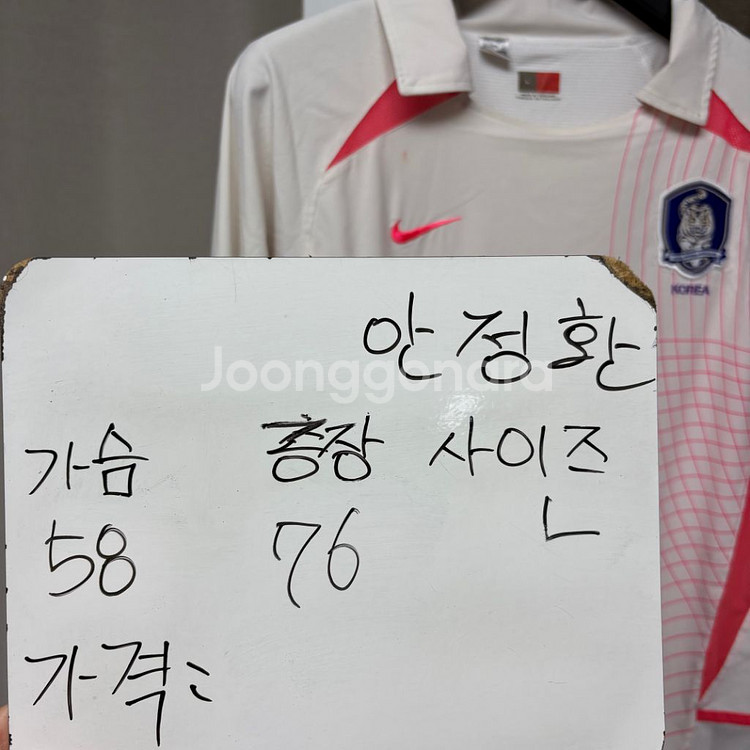 KOREA
안정환
Joonggonara
가슴 총장 사이즈
58 76 L
가격: